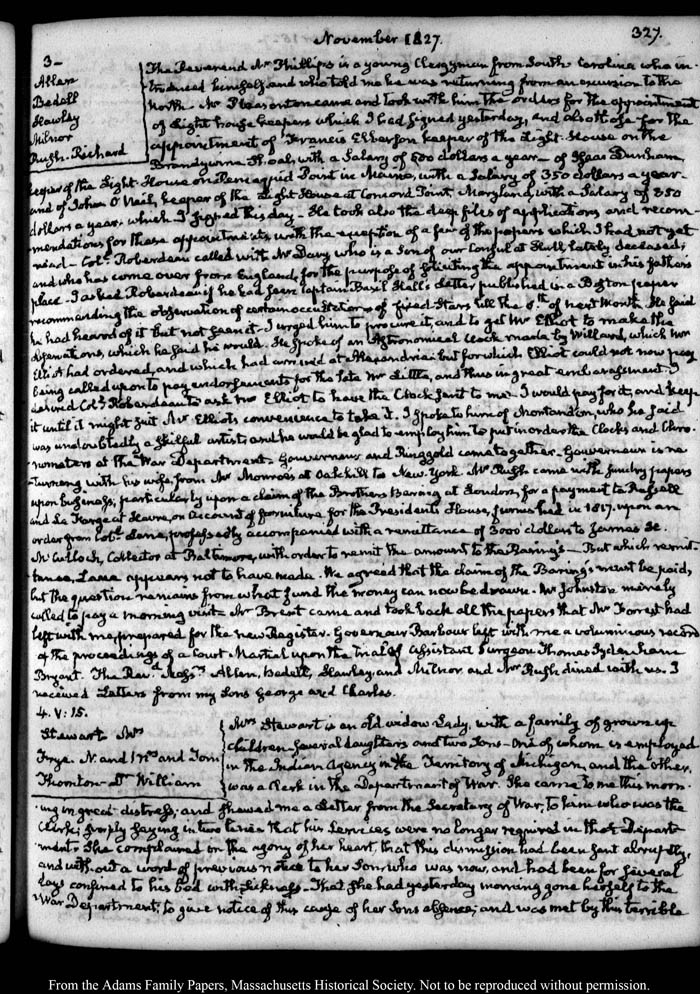 November 1827.
327.
3-
Allen
Bedell
Hawley
Milnor
Rush. Richard
The Reverend Mr Phillips is a young Clergyman from South Carolina who in-
troduced himself, and who told me he was returning from an excursion to the
North. Mr Pleasonton came and took with him the orders for the appointment
of Light house keepers which I had signed yesterday, and also those for the
appointment of Francis Elberson keeper of the Light-House on the
Brandywine Shoal, with a Salary of 600 dollars a year - of Isaac Dunham,
keeper of the Light-House on Pemaquid Point in Maine, with a Salary of 350 dollars a year-
and of John O'Neil, keeper of the Light House at Concord Point, Maryland, with a Salary of 350
dollars a year. which I signed this day - He took also the deep files of applications and recom-
mendations for these appointments, with the exception of a few of the papers which I had not yet
read - Coll. Roberdeau called with Mr Davy who is a Son of our Consul at Hull, lately deceased;
and who has come over from England, for the purpose of soliciting the appointment in his father's
place - I asked Roberdeau if he had seen Captain Basil Hall's Letter published in a Boston paper
recommending the observation of certain occultations of fixed Stars till the 6th of next Month. He said
he had heard of it but not seen it - I urged him to procure it, and to get Mr Elliot to make the
observations, which he said he would. He spoke of an Astronomical Clock made by Willard, which Mr
Elliot had ordered, and which had arrived at Alexandria; but for which Elliot could not now pay
being called upon to pay endorsements for the late Mr Little, and thus in great embarrassment. I
desired Coll. Roberdeau to ask Mr Elliot to have the Clock sent to me. I would pay for it, and keep
it until it might suit Mr Elliot's convenience to take it. I spoke to him of Montandon, who he said
was undoubtedly a skilful artist; and he would be glad to employ him to put in order the Clocks and Chro-
nometers at the War Department - Gouverneur and Ringgold came together. Gouverneur is re-
turning with his wife from Mr Monroe's at Oakhill to New-York. Mr Rush came with sundry papers
upon business, particularly upon a claim of the Brothers Baring at London, for a payment to Russell
and La Farge at Havre, on account of furniture for the President's House, furnished in 1817. upon an
order from Coll. Lane, professedly accompanied with a remittance of 3000 dollars to James H.
McCulloch, Collector at Baltimore, with order to remit the amount to the Baring's - But which remit-
tance, Lane appears not to have made. We agreed that the claim of the Baring's must be paid,
but the question remains from what fund the money can now be drawn. Mr Johnston merely
called to pay a morning visit - Mr Brent came and took back all the papers that Mr Forrest had
left with me, prepared for the new Register. Governor Barbour left with me a voluminous record
of the proceedings of a Court Martial upon the trial of Assistant Surgeon Thomas Sydenham
Bryant. The Revd. Messrs Allen, Bedell, Hawley, and Milnor and Mr Rush dined with us. I
received Letters from my Sons George and Charles.
4. V: 15.
Stewart Mrs
Frye. N. and Mrs and Tom
Thornton - Dr William
Mrs Stewart is an old widow Lady, with a family of grown up
children - several daughters and two Sons - One of whom is employed
in the Indian Agency in the Territory of Michigan, and the other,
was a Clerk in the Department of War. She came to me this morn-
ing in great distress; and shewed me a Letter from the Secretary of War, to him who was the
Clerk; simply saying in two lines that his services were no longer required in that Depart-
ment - She complained in the agony of her heart, that this dismission had been sent abruptly,
and without a word of previous notice to her Son, who was now, and had been for several
days confined to his bed with sickness - That she had yesterday morning gone herself to the
War Department, to give notice of this cause of her Son's absence; and was met by this terrible
From the Adams Family Papers, Massachusetts Historical Society. Not to be reproduced without permission.